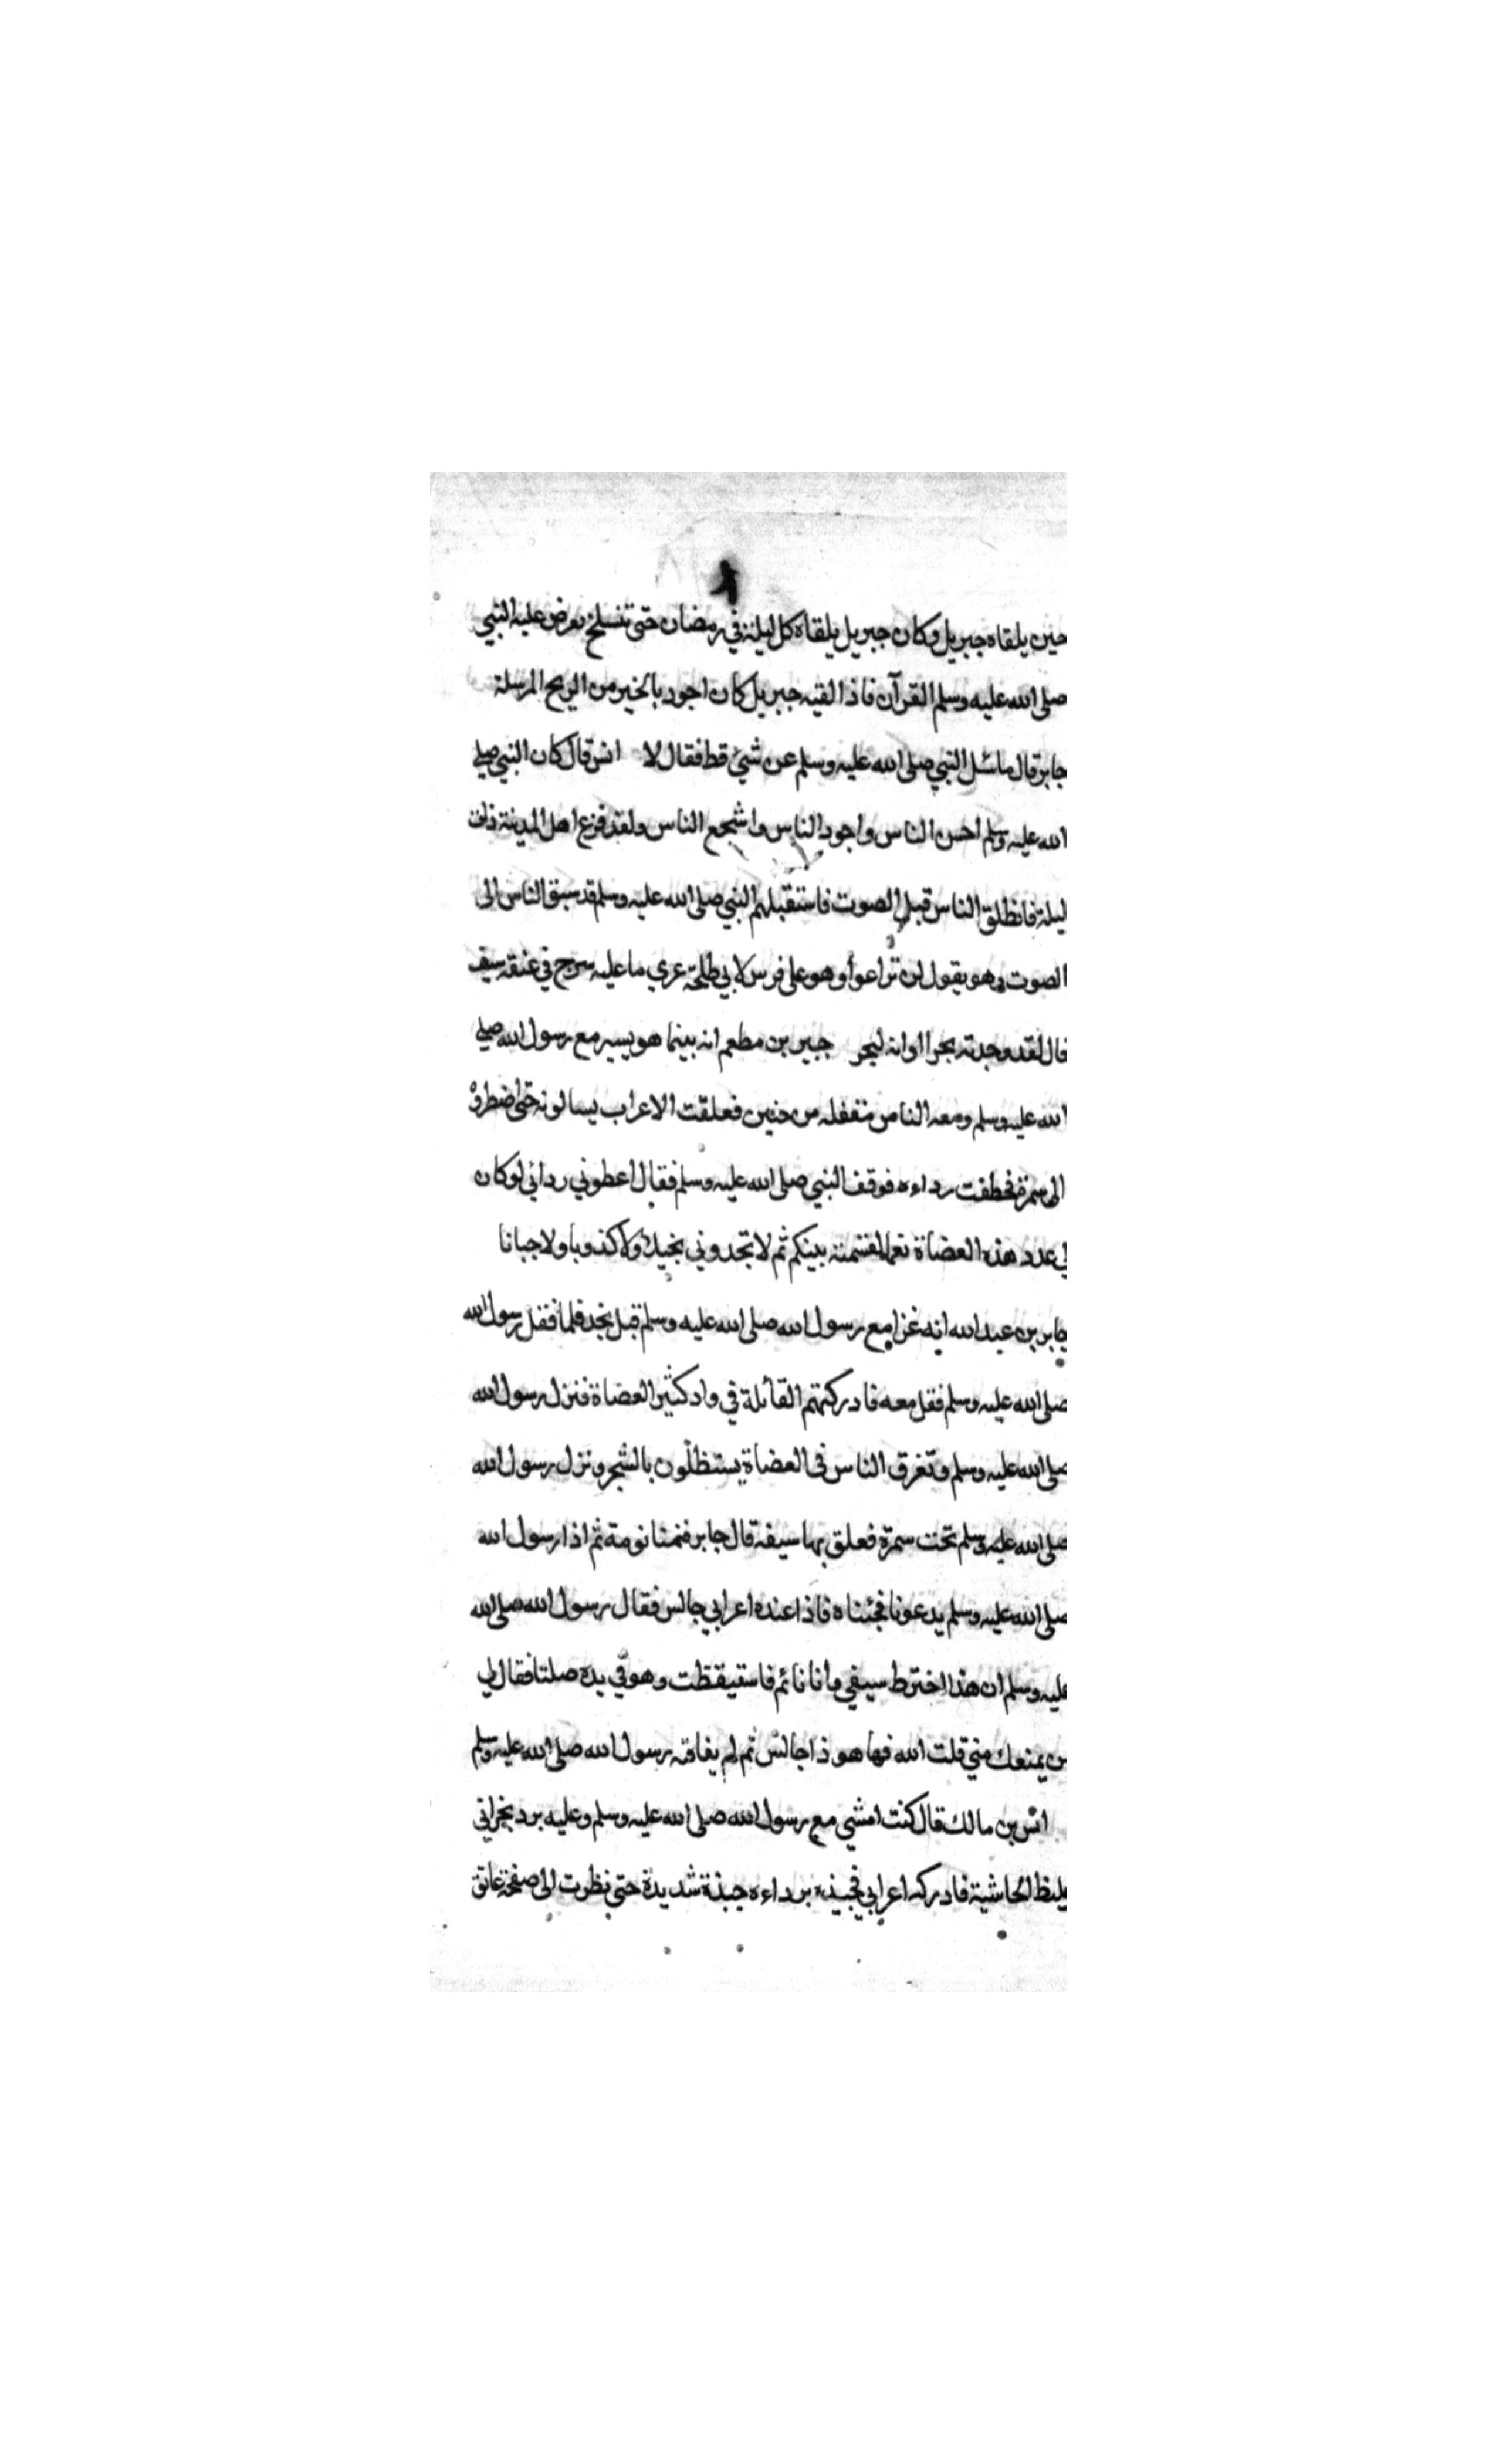 حين يلقاه جبريل وكان جبريل يلقاه كل ليلة في رمضان حتى تنسلخ يعرض عليه النبي
صلى الله عليه وسلم القرآن فاذا لقيه جبريل كان اجود بالخير من الريح المرسلة
جابر قال ماسئل النبي صلى الله عليه وسلم عن شيئ قط فقال لا انس قال كان النبي صلى
الله عليه وسلم احسن الناس واجود الناس واشجع الناس ولقد فزع اهل المدينة ذات
ليلة فانطلق الناس قبل الصوت فاستقبلهم النبي صلى الله عليه وسلم قد سبق الناس الى
الصوت وهو يقول لن تراعوا وهو على فرس لابي طلحة عري ما عليه سرج في عنقه سيف
فال لقد وجدته بحرا اوانه لبحر جبير بن مطعم انه بينما هو يسير مع رسول الله صلى
الله عليه وسلم ومعه الناس مقفله من حنين فعلقت الاعراب يسالونه حتى اضطروه
الى سمرة فخطفت رداءه فوقف النبي صلى الله عليه وسلم فقال اعطوني ردائي لو كان
لي عدد هذه العضاة نعما لقسمته بينكم ثم لا تجدوني بخيلا ولا كذوبا ولا جبانا
جابر بن عبد الله انه غزا مع رسول الله صلى الله عليه وسلم قبل نجد فلما قفل رسول الله
صلى الله عليه وسلم قفل معه فادركتهم القائلة في واد كثير العضاة فنزل رسول الله
صلى الله عليه وسلم وتفرق الناس في العضاة يستظلون بالشجر ونزل رسول الله
صلى الله عليه وسلم تحت سمرة فعلق بها سيفه قال جابر فنمنا نومة ثم اذا رسول الله
صلى الله عليه وسلم يدعونا فجئناه فاذا عنده اعرابي جالس فقال رسول الله صلى الله
عليه وسلم ان هذا اخترط سيفي وانا نائم فاستيقظت وهو في يده صلتا فقال لي
من يمنعك مني قلت الله فها هو ذا جالس ثم لم يعاقبه رسول الله صلى الله عليه وسلم
انس بن مالك قال كنت امشي مع رسول الله صلى الله عليه وسلم وعليه برد نجراني
غليظ الحاشية فادركه اعرابي فجبذه برداءه جبذة شديدة حتى نظرت الى صفحة عاتق